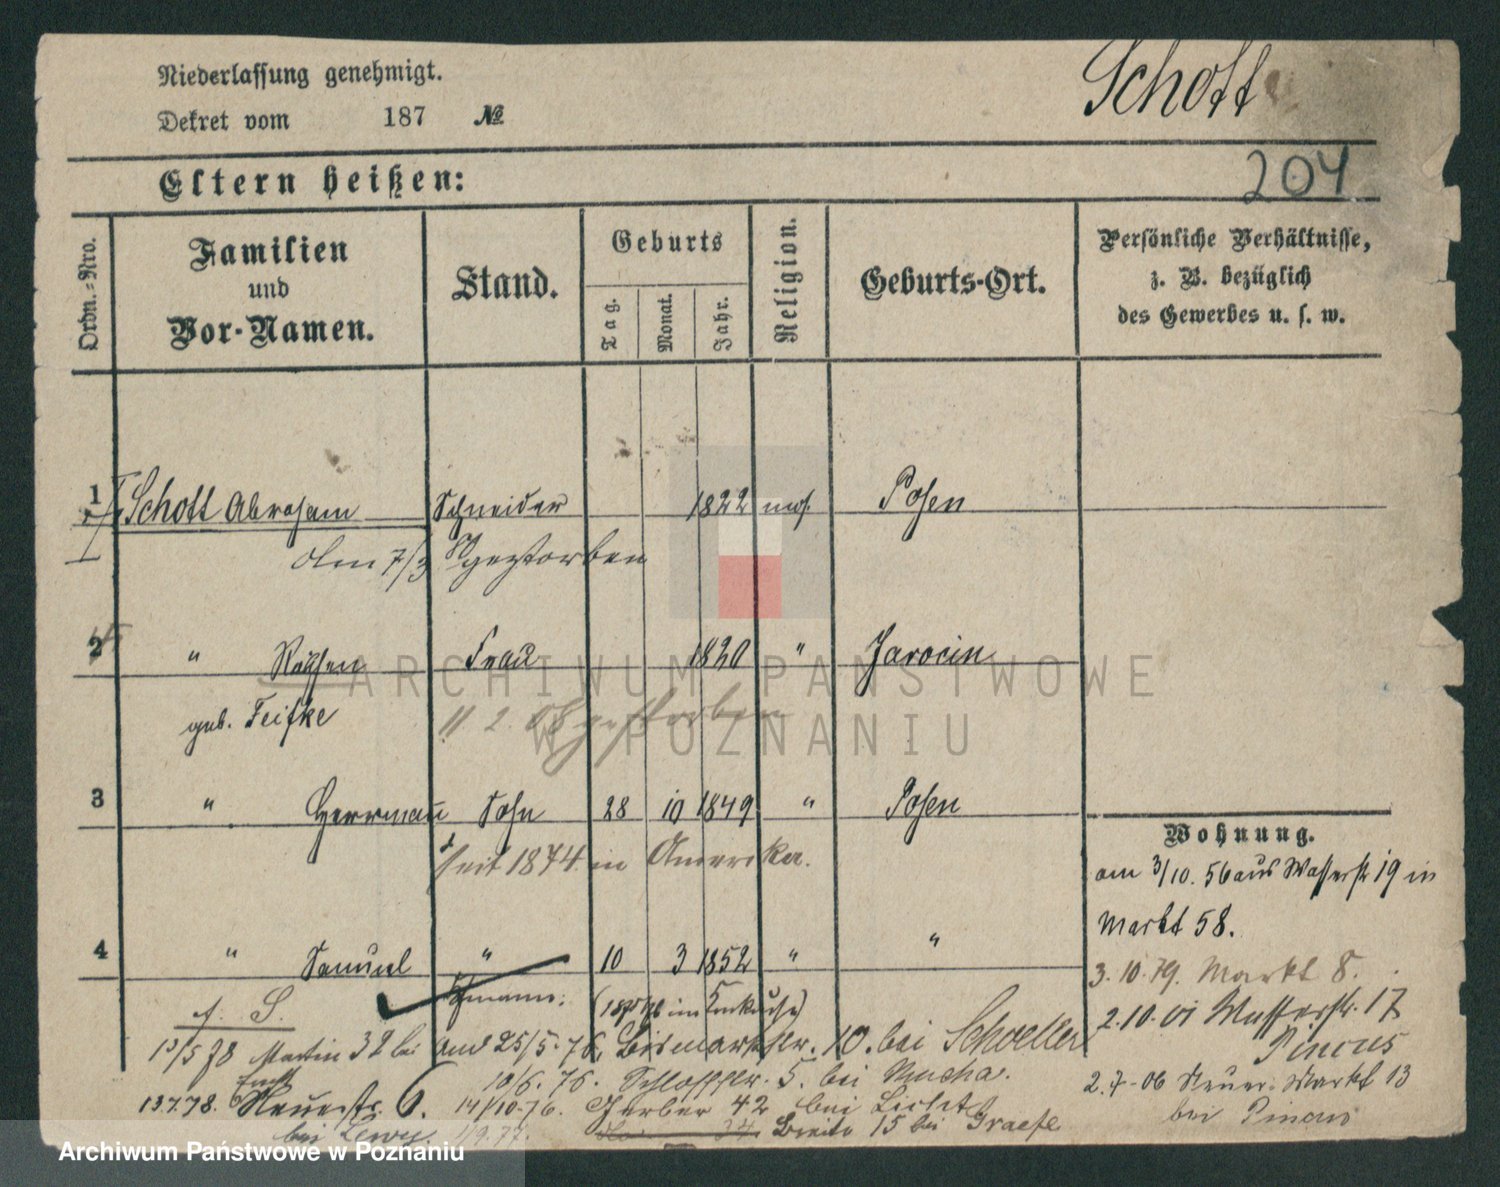 Niederlassung genehmigt.
Schott
Dekret vom 187 №
204
Eltern heißen:
Ordn.-Nro.
Familien und Vor-Namen.
Stand.
Geburts
Tag.
Monat.
Jahr.
Religion.
Geburts-Ort.
Persönliche Verhältnisse,
z. B. bezüglich
des Gewerbes u. s. w.
1 Schott Abraham Schneider 1822 mos. Posen
Am 7/3 gestorben
2 " Frau 1820 " Jarocin
geb. Feifke
11 2. gestorben
3 " Herrman Sohn 28 10 1849 " Posen
seit 1874 in Amerika.
4 " Samuel " 10 3 1852 " "
Wohnung.
am 3/10. 56 aus Wasserstr 19 in
Markt 58.
3. 10. 79. Markt 8.
2. 10. 01 Wasserstr. 17
Pincus
2. 7-06 Neuer Markt 13
bei Pincus
f. S.
25/5. 76. Bismarckstr. 10. bei Schoeller
13/5 78 Martin 32 bei
10/6. 76. Schlossstr. 5. bei Mucha.
13.7.78. Neuestr. 6. 14/10.76. Gerber 42 bei Licht
bei Lewy. 1/9.77. 34 Breite 15 bei Graefe
ARCHIWUM PAŃSTWOWE
W POZNANIU
Archiwum Państwowe w Poznaniu